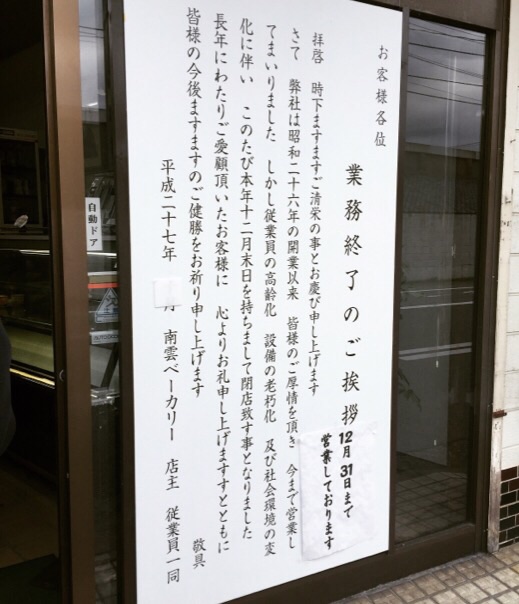 お客様各位
業務終了のご挨拶
12月31日まで
営業しております
拝啓 時下ますますご清栄の事とお慶び申し上げます
さて 弊社は昭和二十六年の開業以来 皆様のご厚情を頂き 今まで営業し
てまいりました しかし従業員の高齢化 設備の老朽化 及び社会環境の変
化に伴い このたび本年十二月末日を持ちまして閉店致す事となりました
長年にわたりご愛顧頂いたお客様に 心よりお礼申し上げますすとともに
皆様の今後ますますのご健勝をお祈り申し上げます
敬具
平成二十七年 月 南雲ベーカリー 店主 従業員一同
自動ドア